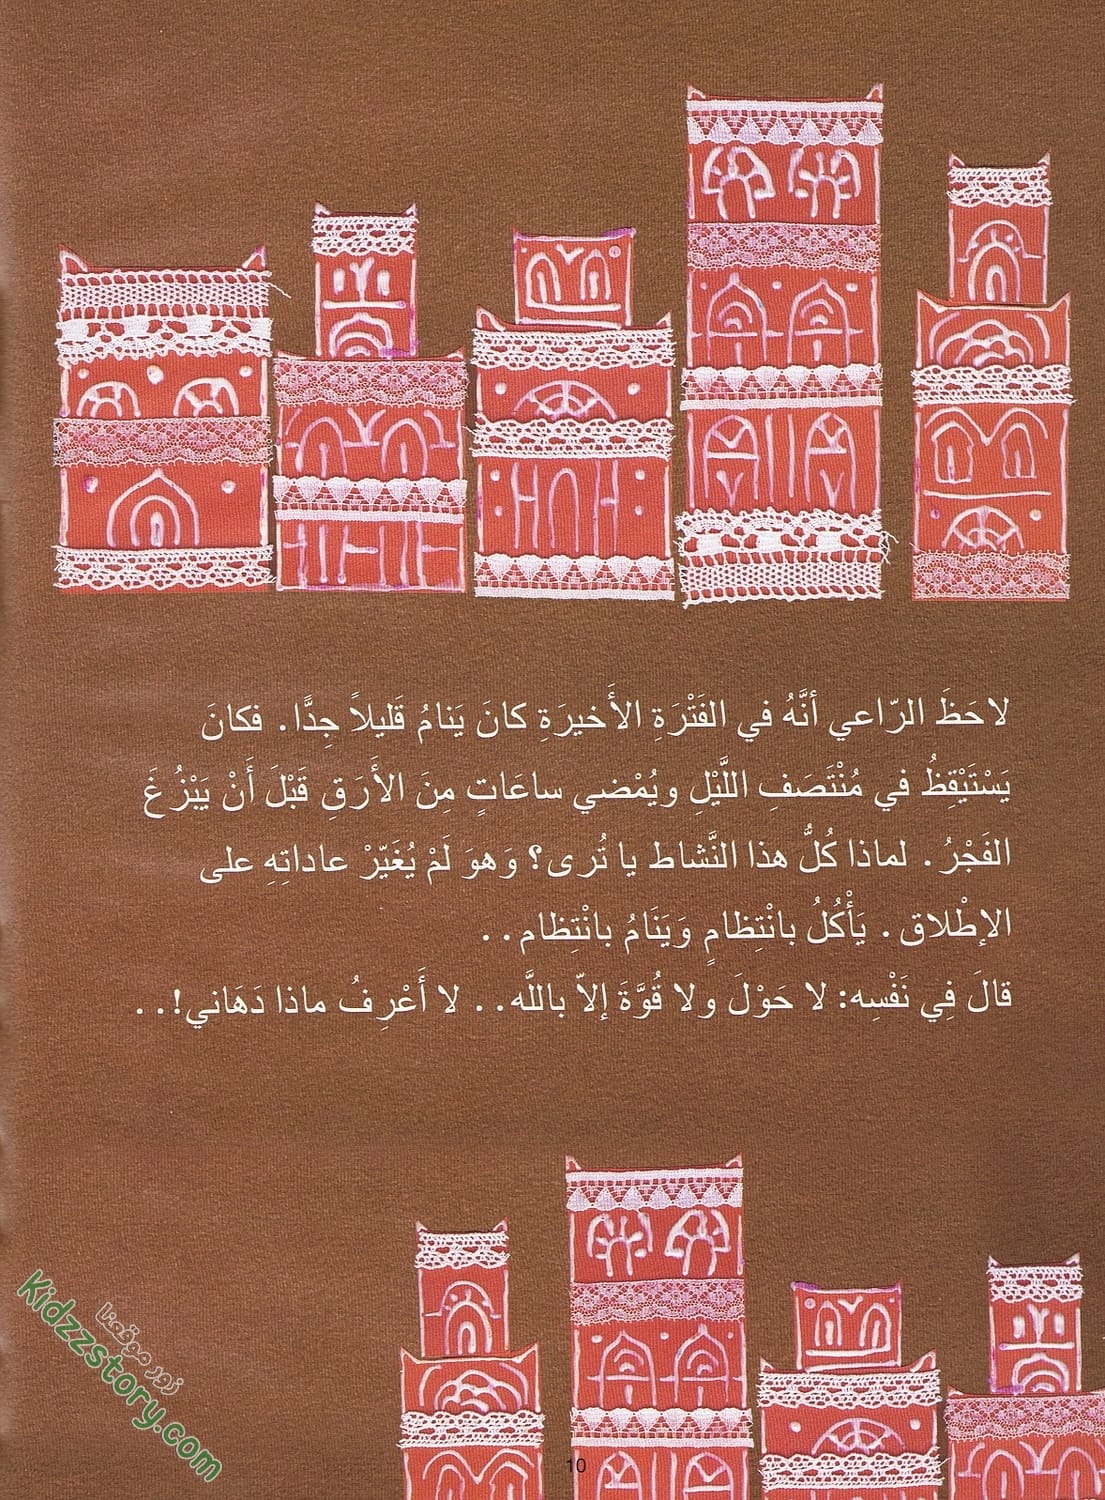 لاحَظَ الرّاعي أنَّهُ في الفَتْرَةِ الأَخيرَةِ كانَ يَنامُ قَليلاً جِدًّا. فكانَ
يَسْتَيْقِظُ في مُنْتَصَفِ اللَّيْلِ ويُمْضي ساعَاتٍ مِنَ الأَرَقِ قَبْلَ أَنْ يَبْزُغَ
الفَجْرُ. لماذا كُلُّ هذا النَّشاط يا تُرى؟ وَهوَ لَمْ يُغَيِّرْ عاداتِهِ على
الإطْلاق. يَأْكُلُ بانْتِظامٍ وَيَنَامُ بانْتِظام..
قالَ فِي نَفْسِه: لا حَوْلَ ولا قُوَّةَ إلاّ باللَّه.. لا أَعْرِفُ ماذا دَهَاني!..
زور موقعنا
Kidzzstory.com
10